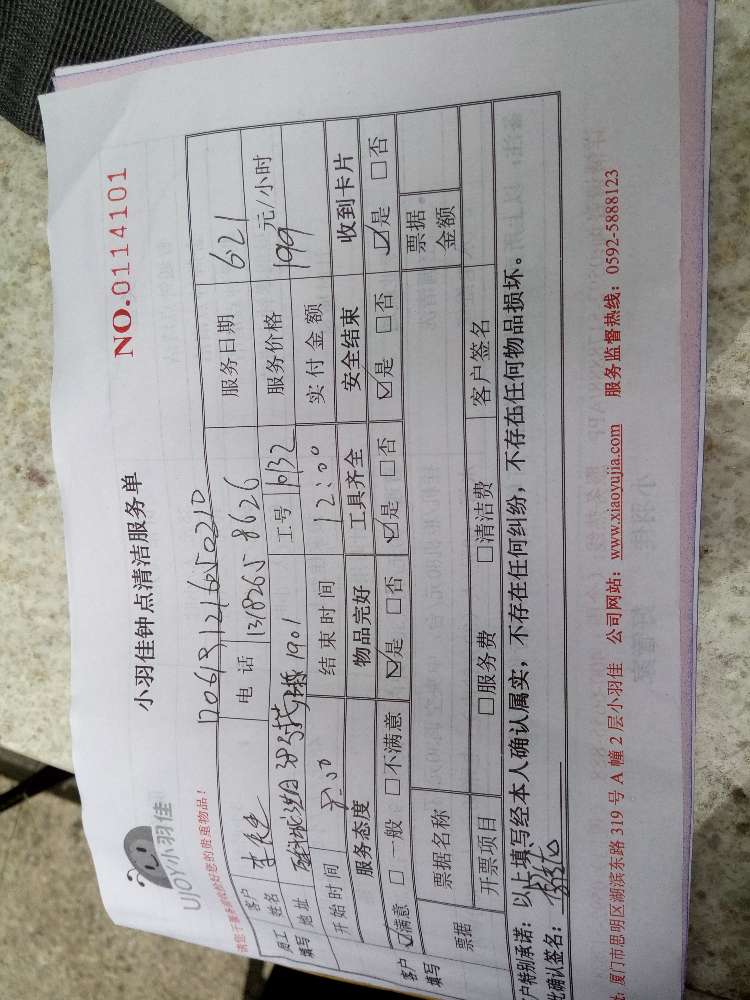 UJOY小羽佳
小羽佳钟点清洁服务单
NO.0114101
请您于服务前收好您的贵重物品!
员工填写
客户姓名 李 电话 13182658626 服务日期 621
地址 1901 工号 服务价格 元/小时
开始时间 8:50 结束时间 12:00 实付金额 199
客户填写
服务态度 物品完好 工具齐全 安全结束 收到卡片
☑满意 □一般 □不满意 ☑是 □否 ☑是 □否 ☑是 □否 ☑是 □否
票据 票据名称 票据金额
开票项目 □服务费 □清洁费 客户签名
户特别承诺:以上填写经本人确认属实,不存在任何纠纷,不存在任何物品损坏。
确认签名:
厦门市思明区湖滨东路 319 号 A 幢 2 层小羽佳 公司网站:www.xiaoyujia.com 服务监督热线:0592-5888123